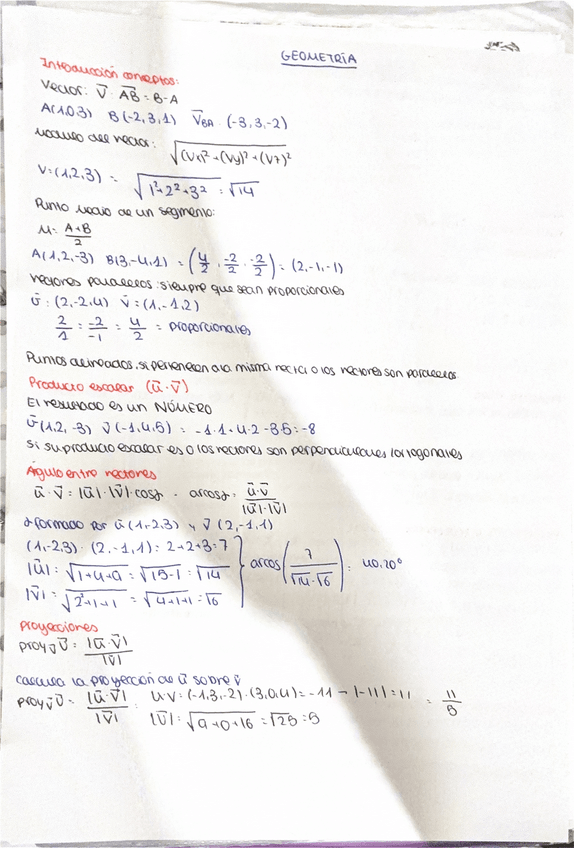 GEOMETRÍA
Introducción conceptos:
Vector: V⃗ · AB⃗ = B-A
A(1,0,3) B(-2,3,1) V⃗BA · (-3,3,-2)
Modulo del vector: √(Vx)²+(Vy)²+(Vz)²
V=(1,2,3) = √1²+2²+3² = √14
Punto medio de un segmento:
M= A+B/2
A(1,2,-3) B(3,-4,1) = (4/2, -2/2, -2/2) = (2,-1,-1)
Vectores paralelos: siempre que sean proporcionales
u⃗: (2,-2,4) v⃗ = (1,-1,2)
2/1 = -2/-1 = 4/2 = proporcionales
Puntos alineados, si pertenecen a la misma recta o los vectores son paralelos.
Producto escalar (u⃗·v⃗)
El resultado es un NÚMERO
u⃗(1,2,-3) v⃗(-1,4,5) = -1·1+4·2-3·5=-8
Si su producto escalar es 0 los vectores son perpendiculares / ortogonales
Ángulo entre vectores
u⃗·v⃗ = |u⃗|·|v⃗|·cosα - arcosα = u⃗·v⃗/|u⃗|·|v⃗|
α formado por u⃗(1,-2,3) y v⃗(2,-1,1)
(1,-2,3)·(2,-1,1)=2+2+3=7
|u⃗| = √1+4+9 = √15-1 = √14 } arcos(7/√14·√6) = 40.20°
|v⃗| = √2²+1+1 = √4+1+1 = √6
Proyecciones
proy v⃗ u⃗ = |u⃗·v⃗|/|v⃗|
Calcula la proyección de u⃗ sobre v⃗
proy v⃗ u⃗ = |u⃗·v⃗|/|v⃗| = u·v=(-1,3,-2)·(3,0,4)=-11 → |-11|=11 = 11/5
|v⃗| = √9+0+16 = √25 = 5